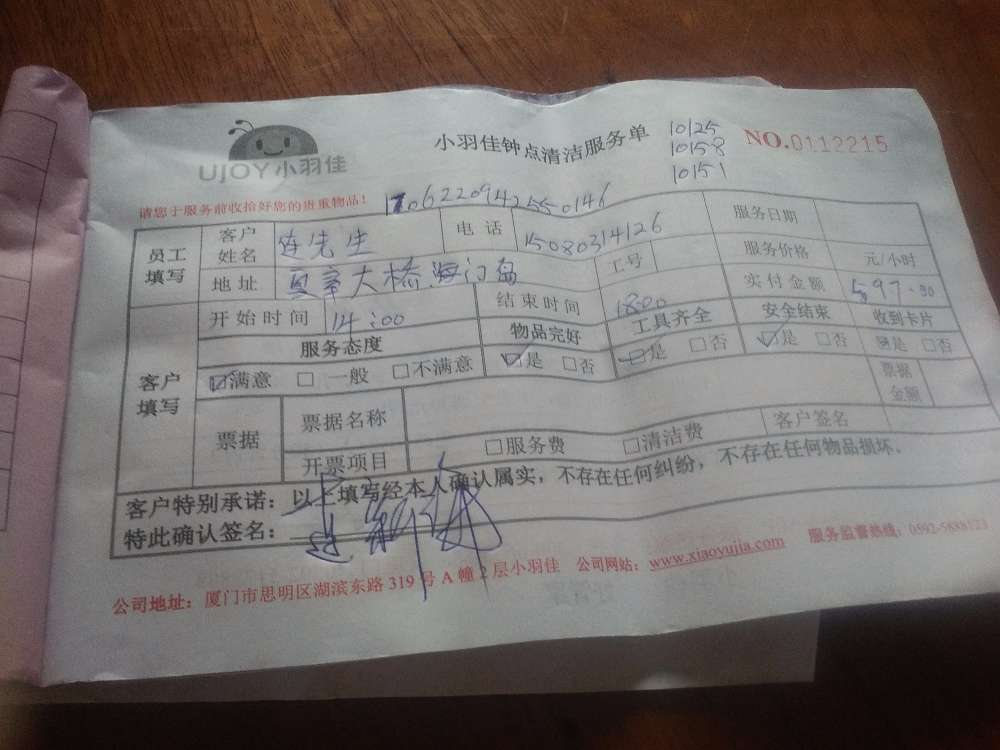 小羽佳钟点清洁服务单
10125
10158
10151
NO.0112215
UJOY小羽佳
请您于服务前收拾好您的贵重物品!
员工填写
客户姓名 连先生 电话 15080314126 服务日期
地址 工号 服务价格 元/小时
开始时间 14:00 结束时间 1800 实付金额
客户填写
服务态度 物品完好 工具齐全 安全结束 收到卡片
☑满意 □一般 □不满意 ☑是 □否 ☑是 □否 ☑是 □否 是 □否
票据 票据名称 票据金额
开票项目 □服务费 □清洁费 客户签名
客户特别承诺:以上填写经本人确认属实,不存在任何纠纷,不存在任何物品损坏.
特此确认签名:
公司地址:厦门市思明区湖滨东路319号A幢2层小羽佳 公司网站:www.xiaoyujia.com 服务监督热线: